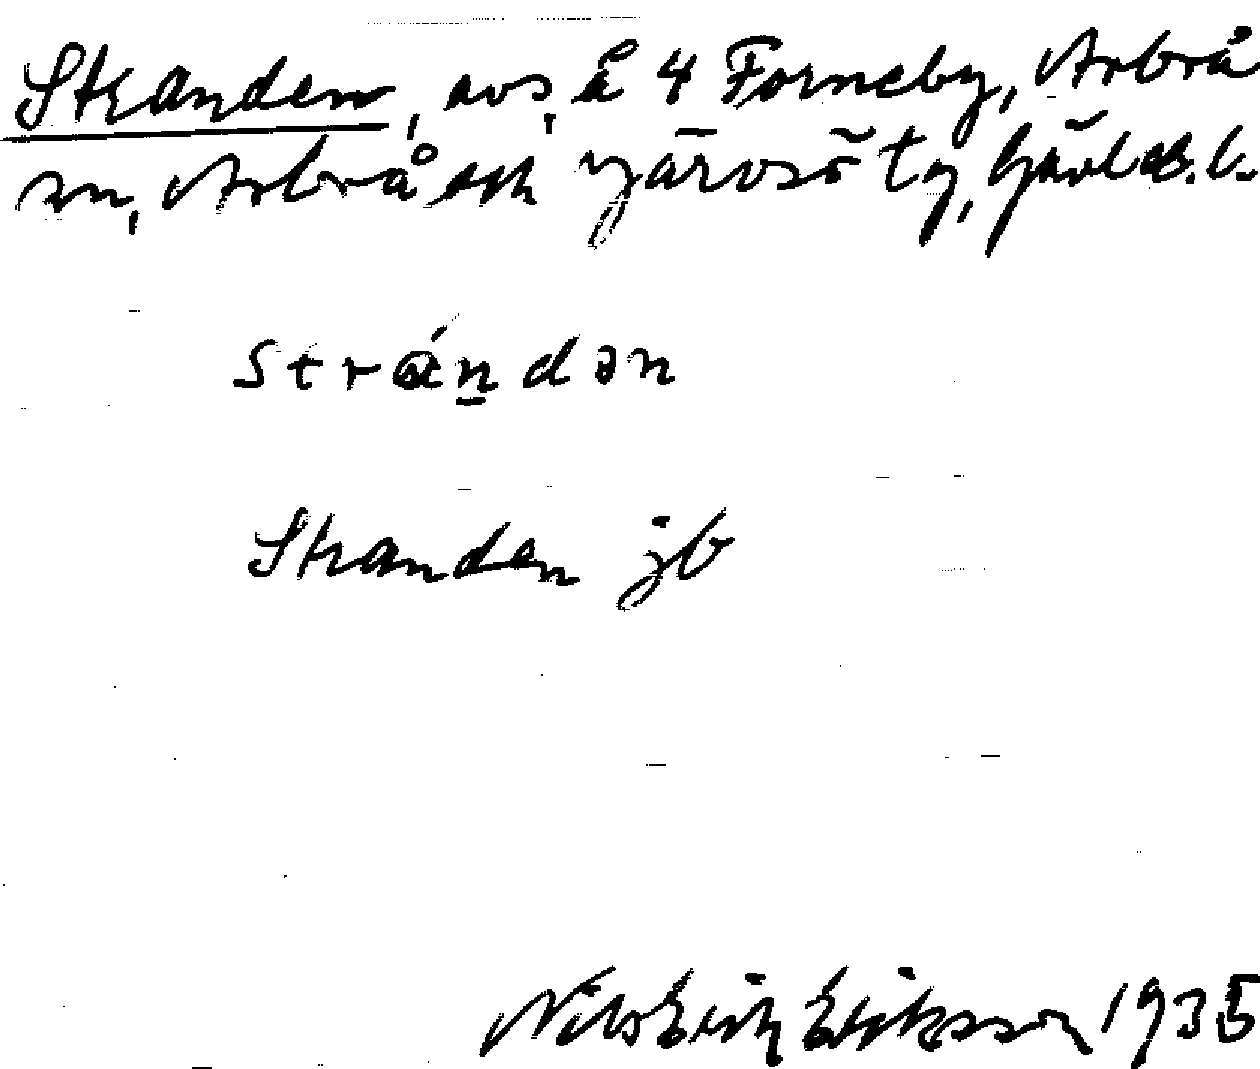 Stranden, avs. å 4 Forneby, Arbrå
sn, Arbrå och Järvsö tg, Gävleb. l.
Strandən
Stranden jb
Nils Erik Eriksson 1935